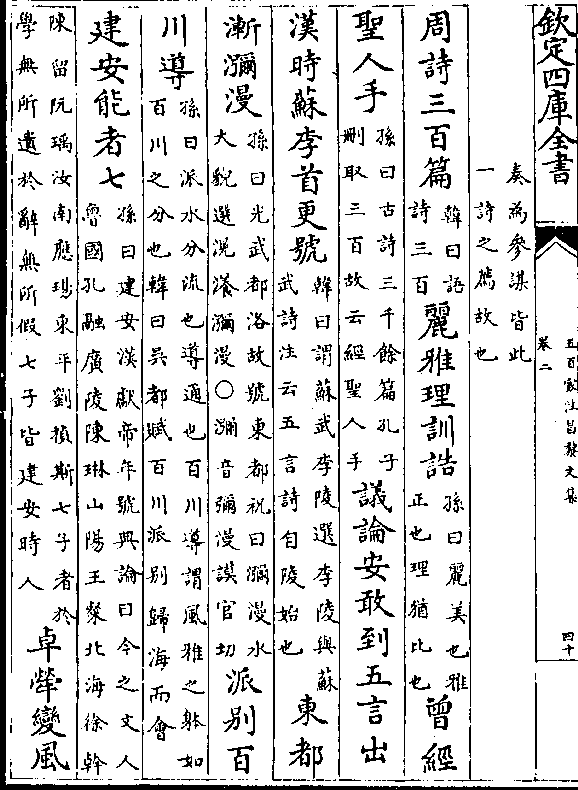 欽定四庫全書
五百家注昌黎文集
卷二
四十
奏為參謀皆此
一詩之薦故也
周詩三百篇韓曰語詩三百麗雅理訓誥孫曰麗美也雅正也理猶比也曾經
聖人手孫曰古詩三千餘篇孔子刪取三百故云經聖人手議論安敢到五言出
漢時蘇李首更號韓曰謂蘇武李陵選李陵與蘇武詩注云五言詩自陵始也東都
漸瀰漫孫曰光武都洛故號東都祝曰瀰漫水大貌選滉瀁瀰漫○瀰音彌漫謨官切派別百
川導孫曰派水分流也導通也百川導謂風雅之體如百川之分也韓曰吳都賦百川派別歸海而會
建安能者七孫曰建安漢獻帝年號典論曰今之文人魯國孔融廣陵陳琳山陽王粲北海徐幹
陳留阮瑀汝南應瑒東平劉楨斯七子者於學無所遺於辭無所假七子皆建安時人卓犖變風